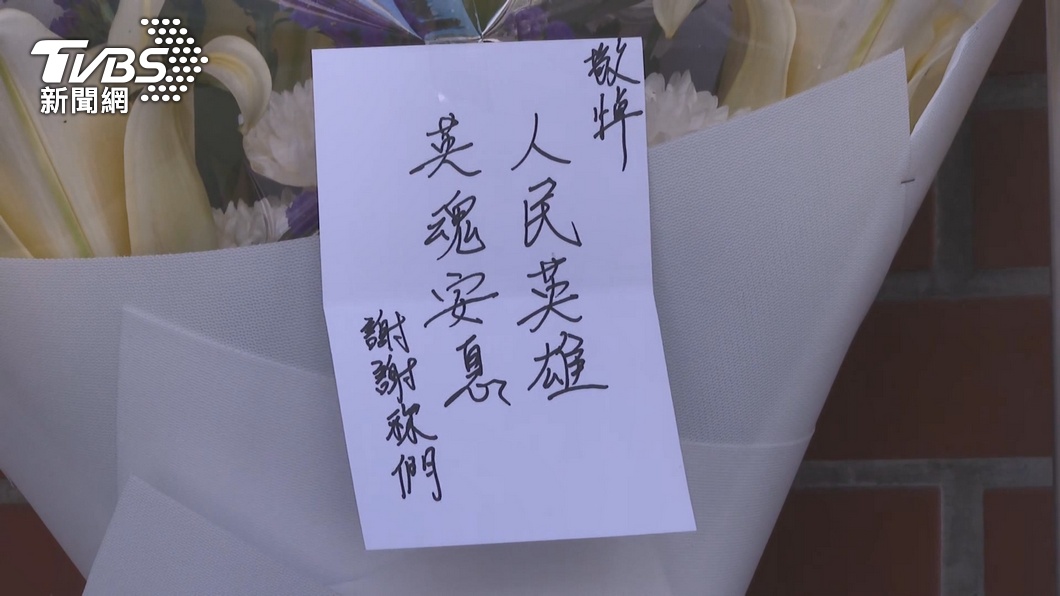 TVBS
新聞網
敬悼
人民英雄
英魂安息
謝謝祢們